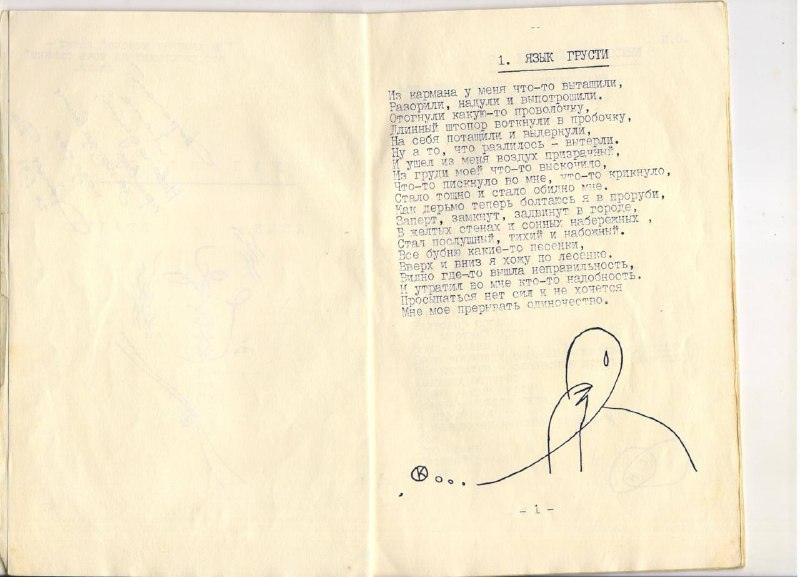 1. ЯЗЫК ГРУСТИ
Из кармана у меня что-то вытащили,
Разорили, надули и выпотрошили.
Отогнули какую-то проволочку,
Длинный штопор воткнули в пробочку,
На себя потащили и выдернули,
Ну а то, что разлилось - вытерли.
И ушел из меня воздух призрачный,
Из груди моей что-то выскочило,
Что-то пискнуло во мне, что-то крикнуло,
Стало тошно и стало обидно мне.
Как дерьмо теперь болтаюсь я в проруби,
Заперт, замкнут, задвинут в городе,
В желтых стенах и сонных набережных,
Стал послушный, тихий и набожный.
Все бубню какие-то песенки,
Вверх и вниз я хожу по лесенке.
Видно где-то вышла неправильность,
И утратил во мне кто-то надобность.
Просыпаться нет сил и не хочется
Мне мое прерывать одиночество.
К
- 1 -